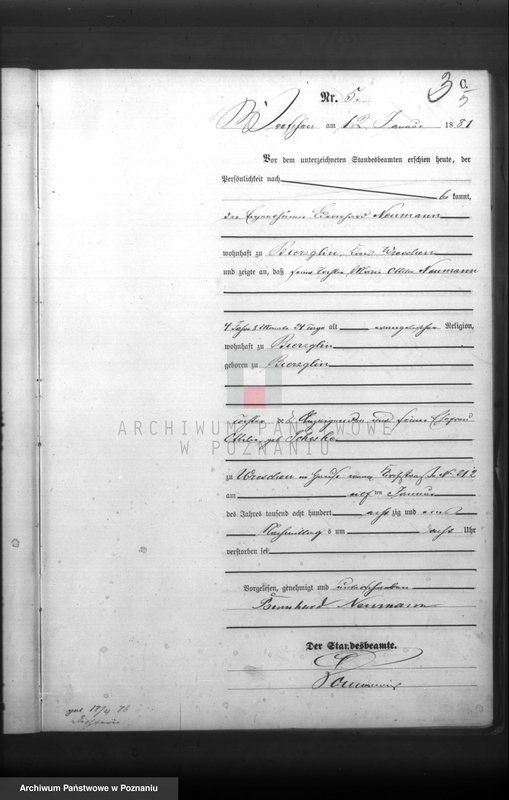 3
C.
5
Nr. 5.
Wreschen am 12 Januar 1881
Vor dem unterzeichneten Standesbeamten erschien heute, der
Persönlichkeit nach
be kannt,
der Eigenthümer Bernhard Neumann
wohnhaft zu Bierzglin, Kreis Wreschen
und zeigte an, daß seine Tochter Ottilie Neumann
4 Jahre 8 Monate 24 Tage alt evangelischer Religion,
wohnhaft zu Bierzglin
geboren zu Bierzglin
Tochter des Anzeigenden und seiner Ehefrau
Ottilie geb
ARCHIWUM PAŃSTWOWE
W POZNANIU
zu Wreschen im Hause No 212
am elf ten Januar
des Jahres tausend acht hundert acht zig und eins
Nachmittag s um acht Uhr
verstorben sei
Vorgelesen, genehmigt und unterschrieben
Bernhard Neumann
Der Standesbeamte.
Archiwum Państwowe w Poznaniu